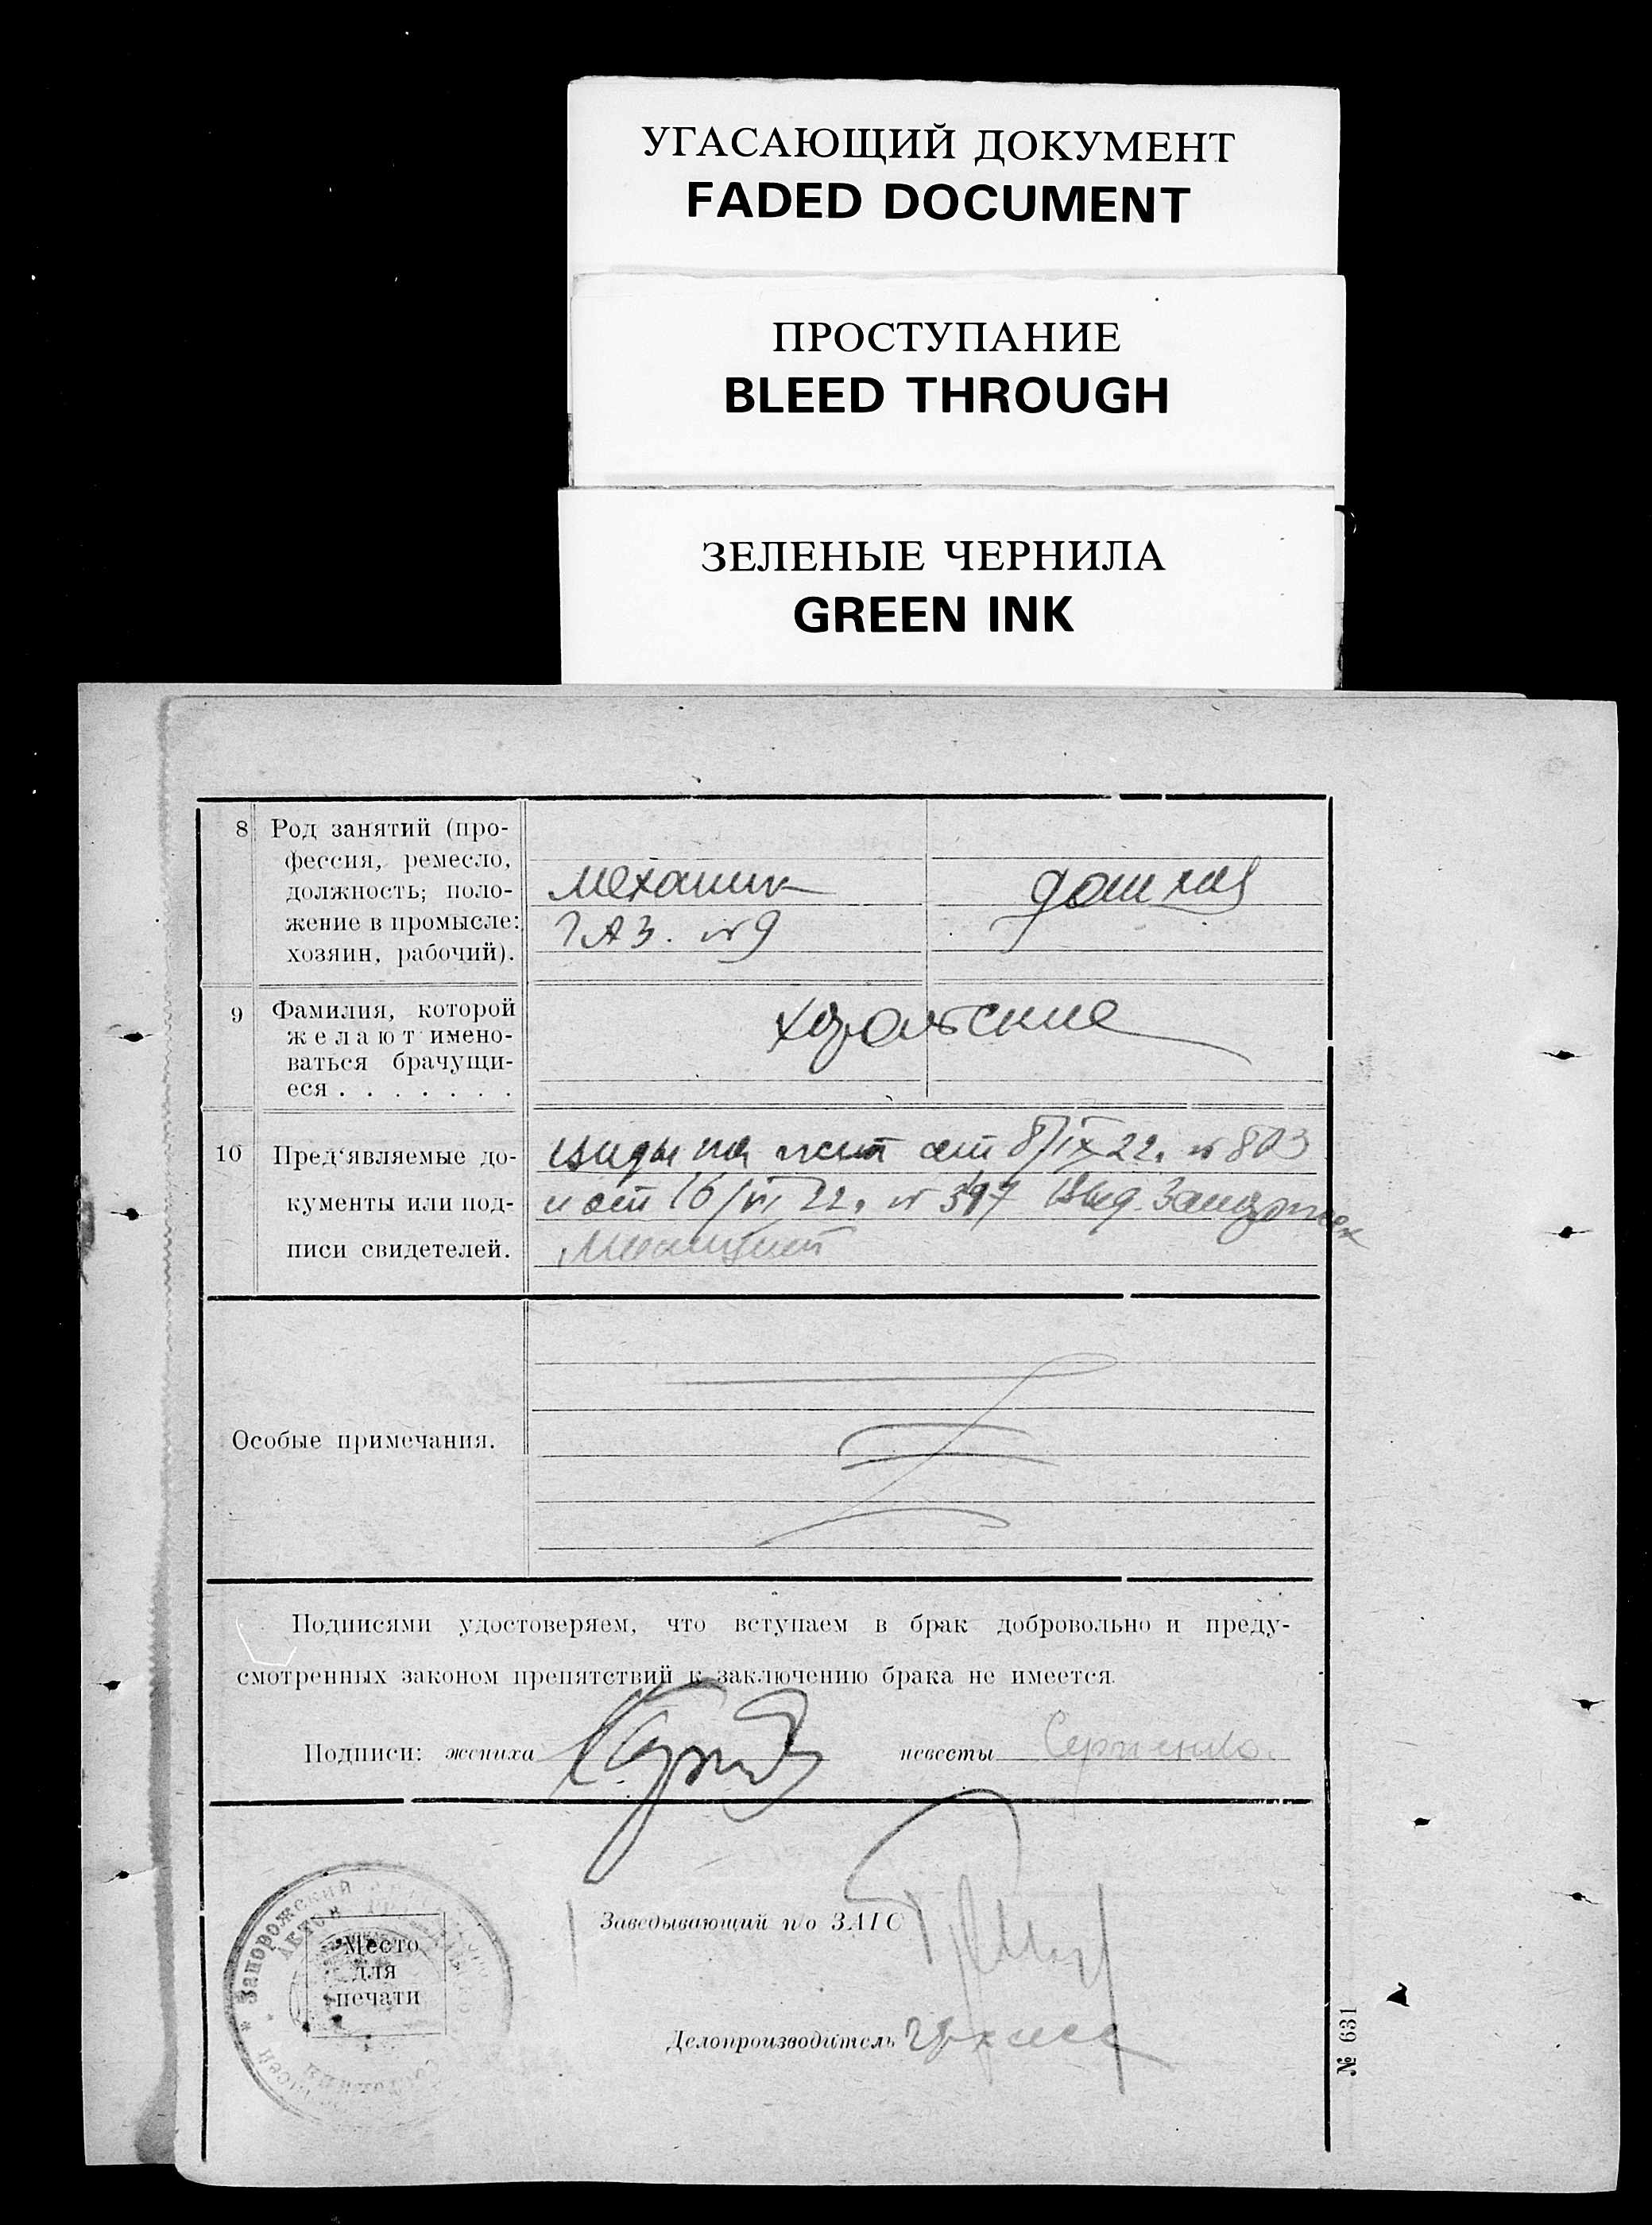 УГАСАЮЩИЙ ДОКУМЕНТ
FADED DOCUMENT
ПРОСТУПАНИЕ
BLEED THROUGH
ЗЕЛЕНЫЕ ЧЕРНИЛА
GREEN INK
8 Род занятий (про-
фессия, ремесло,
должность; поло-
жение в промысле:
хозяин, рабочий).
механик
ГАЗ. №9
дом хоз
9 Фамилия, которой
желают имено-
ваться брачущи-
еся . . . . . . .
10 Пред'являемые до-
кументы или под-
писи свидетелей.
виды на жит от 8/IX 22. № 803
и от 16/VI 22. № 397 Выд.
Милицией
Особые примечания.
Подписями удостоверяем, что вступаем в брак добровольно и преду-
смотренных законом препятствий к заключению брака не имеется.
Подписи: жениха
невесты
Заведывающий п/о ЗАГС
Место
для
печати
Делопроизводитель
Запорожский
№ 631